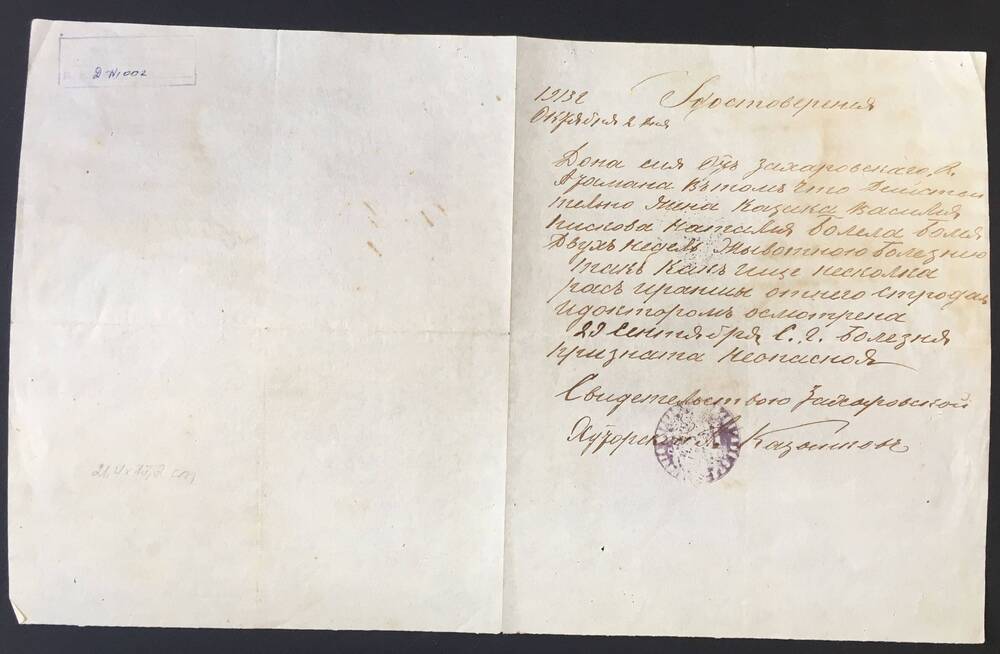 Д №002
1913 г
Октября 2 дня
Удостоверения
Дона сия отъ Захаровского Х.
Атамана в томъ что Действи
тельно Жена Казака Василия
Наталья болела более
Двухъ недель Животною Болезнию
такъ Какъ ище несколка
расъ отчего страдал
идокторомъ осмотрена
29 Сентября С. г. Болезня
призната неопасной
Свидетельствою Захаровской
Хуторской
21,4 х см